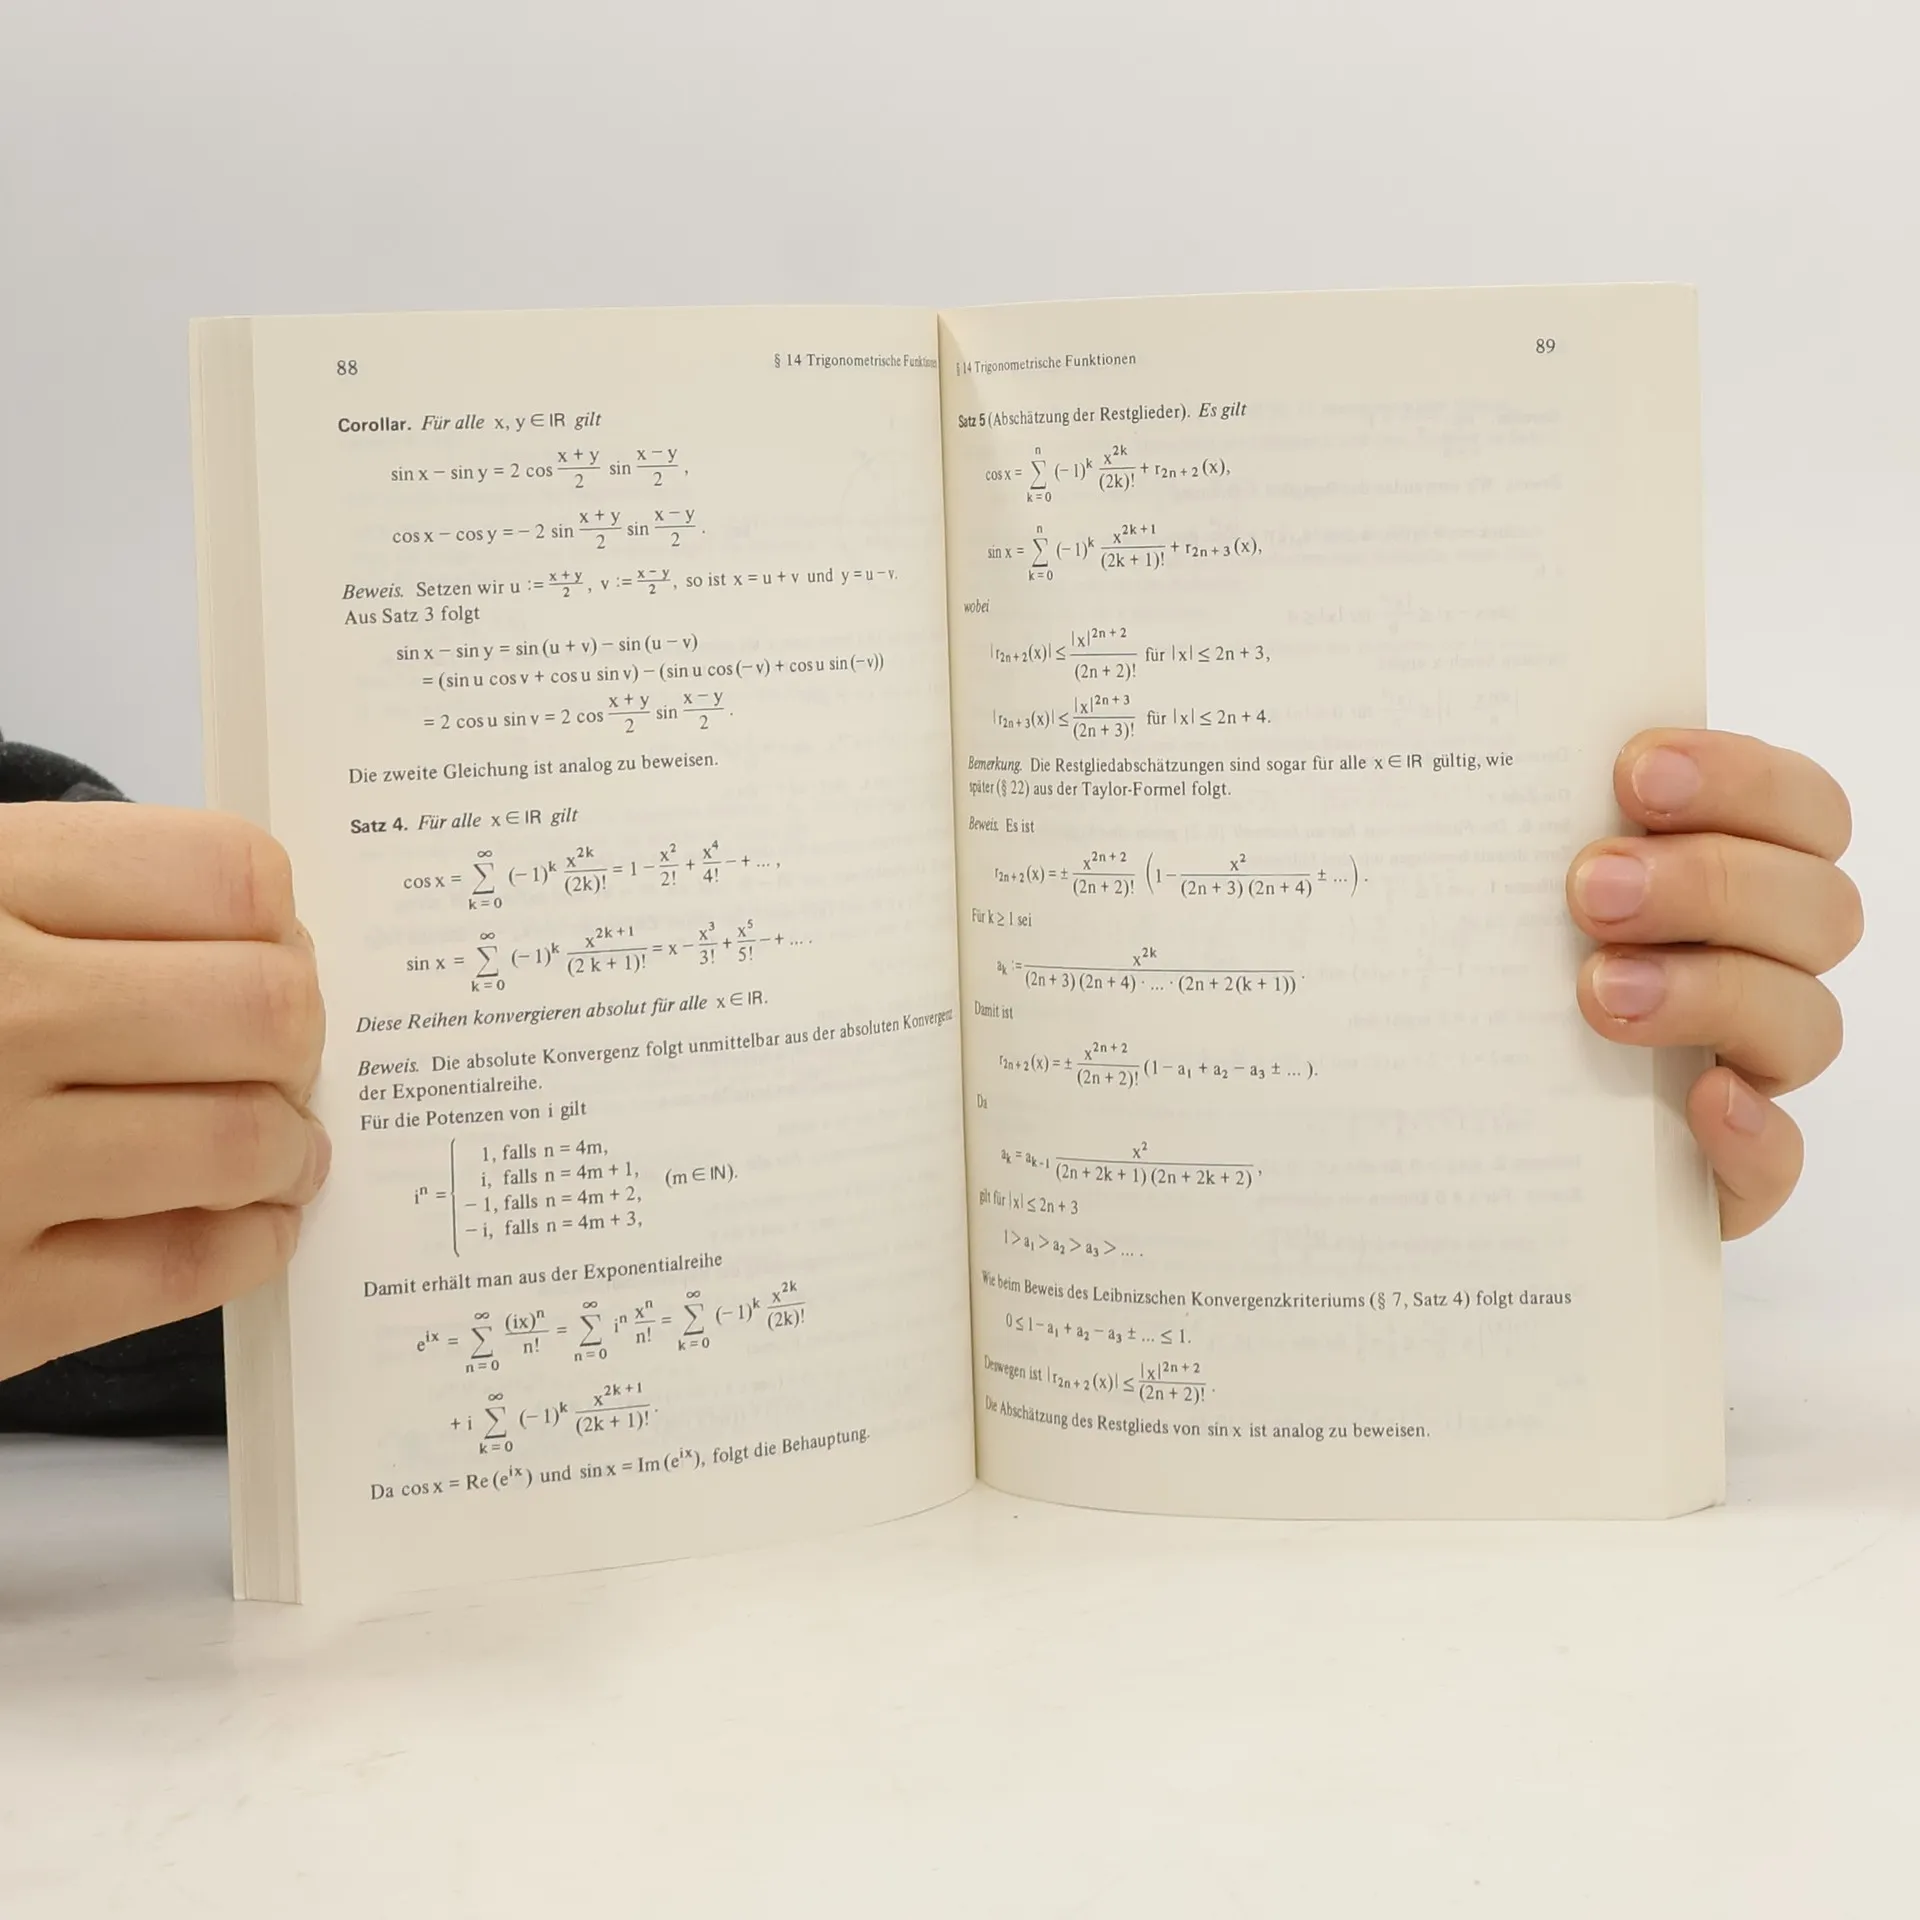 88
§ 14 Trigonometrische Funktionen
Corollar. Für alle x, y ∈ ℝ gilt
sin x − sin y = 2 cos (x + y)/2 sin (x − y)/2 ,
cos x − cos y = − 2 sin (x + y)/2 sin (x − y)/2 .
Beweis. Setzen wir u := (x + y)/2 , v := (x − y)/2 , so ist x = u + v und y = u − v.
Aus Satz 3 folgt
sin x − sin y = sin (u + v) − sin (u − v)
= (sin u cos v + cos u sin v) − (sin u cos (− v) + cos u sin (− v))
= 2 cos u sin v = 2 cos (x + y)/2 sin (x − y)/2 .
Die zweite Gleichung ist analog zu beweisen.
Satz 4. Für alle x ∈ ℝ gilt
cos x = ∑_{k = 0}^{∞} (− 1)^k x^{2k}/(2k)! = 1 − x^2/2! + x^4/4! − + ... ,
sin x = ∑_{k = 0}^{∞} (− 1)^k x^{2k + 1}/(2 k + 1)! = x − x^3/3! + x^5/5! − + ... .
Diese Reihen konvergieren absolut für alle x ∈ ℝ.
Beweis. Die absolute Konvergenz folgt unmittelbar aus der absoluten Konvergenz
der Exponentialreihe.
Für die Potenzen von i gilt
i^n = { 1, falls n = 4m,
i, falls n = 4m + 1,
− 1, falls n = 4m + 2,
− i, falls n = 4m + 3,
(m ∈ ℕ).
Damit erhält man aus der Exponentialreihe
e^{ix} = ∑_{n = 0}^{∞} (ix)^n/n! = ∑_{n = 0}^{∞} i^n x^n/n! = ∑_{k = 0}^{∞} (− 1)^k x^{2k}/(2k)!
+ i ∑_{k = 0}^{∞} (− 1)^k x^{2k + 1}/(2k + 1)! .
Da cos x = Re (e^{ix}) und sin x = Im (e^{ix}), folgt die Behauptung.
§ 14 Trigonometrische Funktionen
89
Satz 5 (Abschätzung der Restglieder). Es gilt
cos x = ∑_{k = 0}^{n} (− 1)^k x^{2k}/(2k)! + r_{2n + 2} (x),
sin x = ∑_{k = 0}^{n} (− 1)^k x^{2k + 1}/(2k + 1)! + r_{2n + 3} (x),
wobei
|r_{2n + 2}(x)| ≤ |x|^{2n + 2}/(2n + 2)! für |x| ≤ 2n + 3,
|r_{2n + 3}(x)| ≤ |x|^{2n + 3}/(2n + 3)! für |x| ≤ 2n + 4.
Bemerkung. Die Restgliedabschätzungen sind sogar für alle x ∈ ℝ gültig, wie
später (§ 22) aus der Taylor-Formel folgt.
Beweis. Es ist
r_{2n + 2} (x) = ± x^{2n + 2}/(2n + 2)! (1 − x^2/((2n + 3) (2n + 4)) ± ...) .
Für k ≥ 1 sei
a_k := x^{2k}/((2n + 3) (2n + 4) · ... · (2n + 2 (k + 1))) .
Damit ist
r_{2n + 2} (x) = ± x^{2n + 2}/(2n + 2)! (1 − a_1 + a_2 − a_3 ± ... ).
Da
a_k = a_{k-1} x^2/((2n + 2k + 1) (2n + 2k + 2)) ,
gilt für |x| ≤ 2n + 3
1 > a_1 > a_2 > a_3 > ... .
Wie beim Beweis des Leibnizschen Konvergenzkriteriums (§ 7, Satz 4) folgt daraus
0 ≤ 1 − a_1 + a_2 − a_3 ± ... ≤ 1.
Deswegen ist |r_{2n + 2} (x)| ≤ |x|^{2n + 2}/(2n + 2)! .
Die Abschätzung des Restglieds von sin x ist analog zu beweisen.